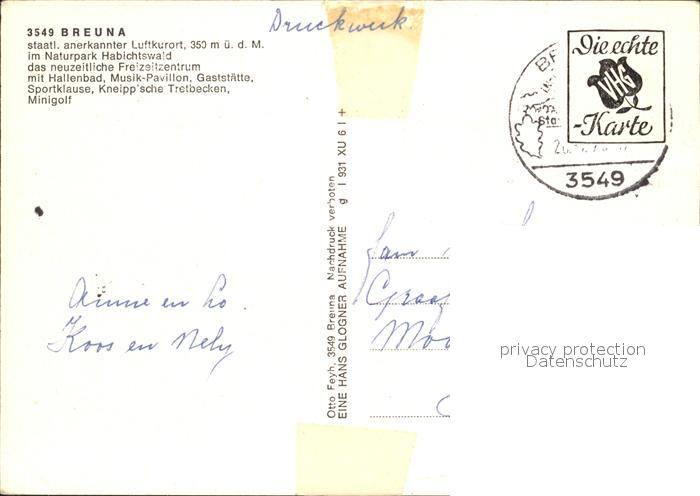 3549 BREUNA
staatl. anerkannter Luftkurort, 350 m ü. d. M.
im Naturpark Habichtswald
das neuzeitliche Freizeitzentrum
mit Hallenbad, Musik-Pavillon, Gaststätte,
Sportklause, Kneipp'sche Tretbecken,
Minigolf
Druckwerk
Die echte
VHG
-Karte
3549
Otto Feyh, 3549 Breuna Nachdruck verboten
EINE HANS GLOGNER AUFNAHME g I 931 XU 6 I +
Annie en Co
Koos en Nely
Fam
privacy protection
Datenschutz